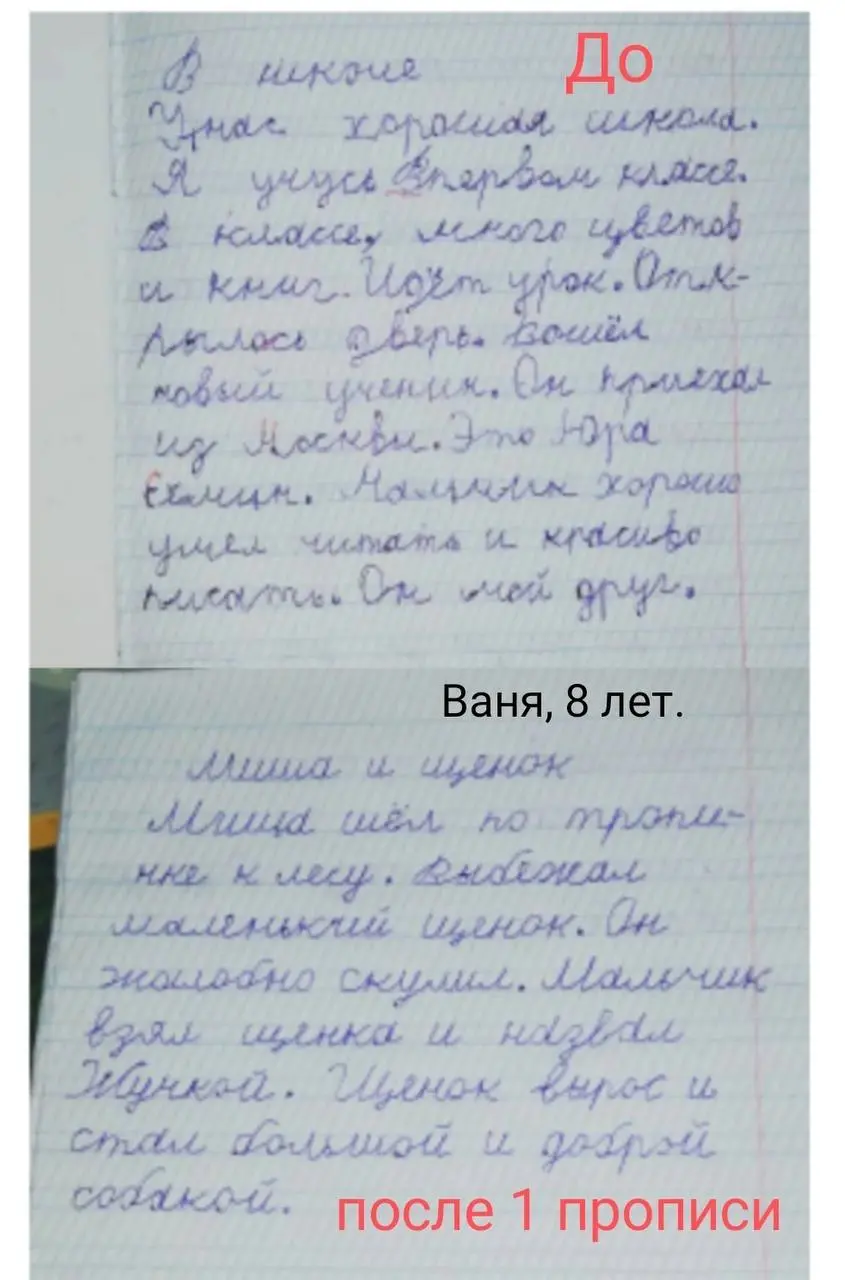 До
В школе
У нас хорошая школа.
Я учусь в первом классе.
В классе, много цветов
и книг. Идёт урок. Отк-
рылась дверь. Вошёл
новый ученик. Он приехал
из Москвы. Это Юра
хорошо
умел читать и красиво
писать. Он мой друг.
Ваня, 8 лет.
Миша и щенок
Миша шёл по тропи-
нке к лесу. Выбежал
маленький щенок. Он
жалобно скулил. Мальчик
взял щенка и назвал
Жучкой. Щенок вырос и
стал большой и доброй
собакой.
после 1 прописи